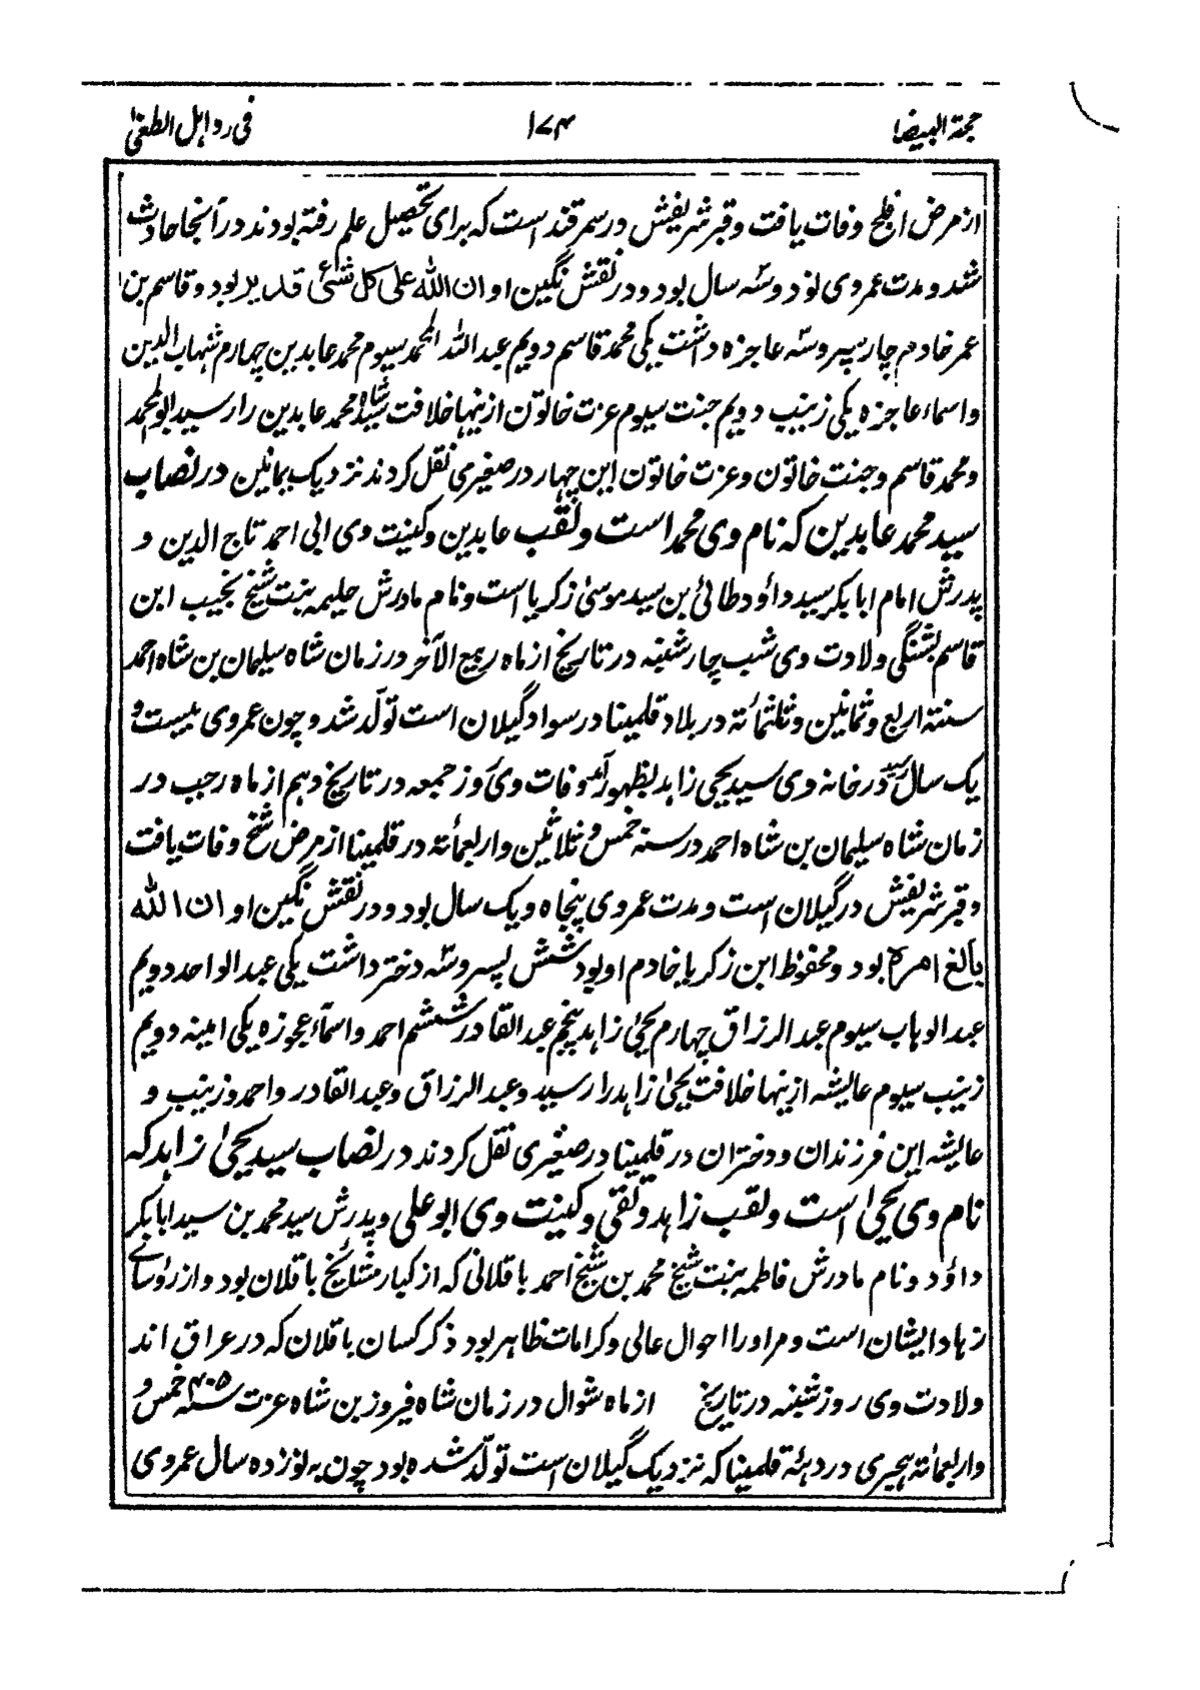 حجة البیضا ۱۷۴ فی رد اہل الطغی
از مرض افلح وفات یافت و قبر شریفش در سمرقند است که برای تحصیل علم رفته بودند در آنجا حادث
شد و مدت عمر وی نود و سه سال بود و در نقش نگین او ان الله علی کل شئی قدیر بود و قاسم بن
عمر خادم چار پسر و سه عاجزه داشت یکی محمد قاسم دویم عبد الله المحمد سیوم محمد عابدین چهارم شهاب الدین
و اسماء عاجزه یکی زینب دویم جنت سیوم عزت خاتون ازینها خلافت شاه محمد عابدین را رسید ابو المحمد
و محمد قاسم و جنت خاتون و عزت خاتون این چهار در صغیری نقل کردند نزدیک بمانین در نصاب
سید محمد عابدین که نام وی محمد است و لقب عابدین و کنیت وی ابی احمد تاج الدین و
پدرش امام ابابکر سید داؤد طائی بن سید موسیٰ زکریا است و نام مادرش حلیمه بنت شیخ نجیب ابن
قاسم بشنگی ولادت وی شب چار شنبه در تاریخ از ماه ربیع الآخر در زمان شاه سلیمان بن شاه احمد
سنته اربع و ثمانین و ثلثمائة در بلاد قلمینا در سواد گیلان است تولّد شد و چون عمر وی بیست و
یک سال رسید در خانه وی سید یحیی زاهد بظهور آمد وفات وی روز جمعه در تاریخ دهم از ماه رجب در
زمان شاه سلیمان بن شاه احمد در سنه خمس و ثلاثین و اربعمائة در قلمینا از مرض شخ وفات یافت
و قبر شریفش در گیلان است و مدت عمر وی پنجاه و یک سال بود و در نقش نگین او ان الله
بالغ امره بود و محفوظ ابن زکریا خادم او بود شش پسر و سه دختر داشت یکی عبد الواحد دویم
عبد الوهاب سیوم عبد الرزاق چهارم یحیٰ زاهد پنجم عبد القادر ششم احمد و اسماء عجوزه یکی امینه دویم
زینب سیوم عایشه ازینها خلافت یحیٰ زاهد را رسید و عبد الرزاق و عبد القادر و احمد و زینب و
عایشه این فرزندان و دختران در قلمینا در صغیری نقل کردند در نصاب سید یحیٰ زاهد که
نام وی یحیٰ است و لقب زاهد و تقی و کنیت وی ابو علی و پدرش سید محمد بن سید ابابکر
داؤد و نام مادرش فاطمه بنت شیخ محمد بن شیخ احمد باقلانی که از کبار مشایخ باقلان بود و از رؤسائے
زهاد ایشان است و مر او را احوال عالی و کرامات ظاهر بود ذکر کسان باقلان که در عراق اند
ولادت وی روز شنبه در تاریخ از ماه شوال در زمان شاه فیروز بن شاه عزت سنه ۴۰۵ خمس و
و اربعمائة هجری در دهئة قلمینا که نزدیک گیلان است تولّد شده بود چون به نوزده سال عمر وی